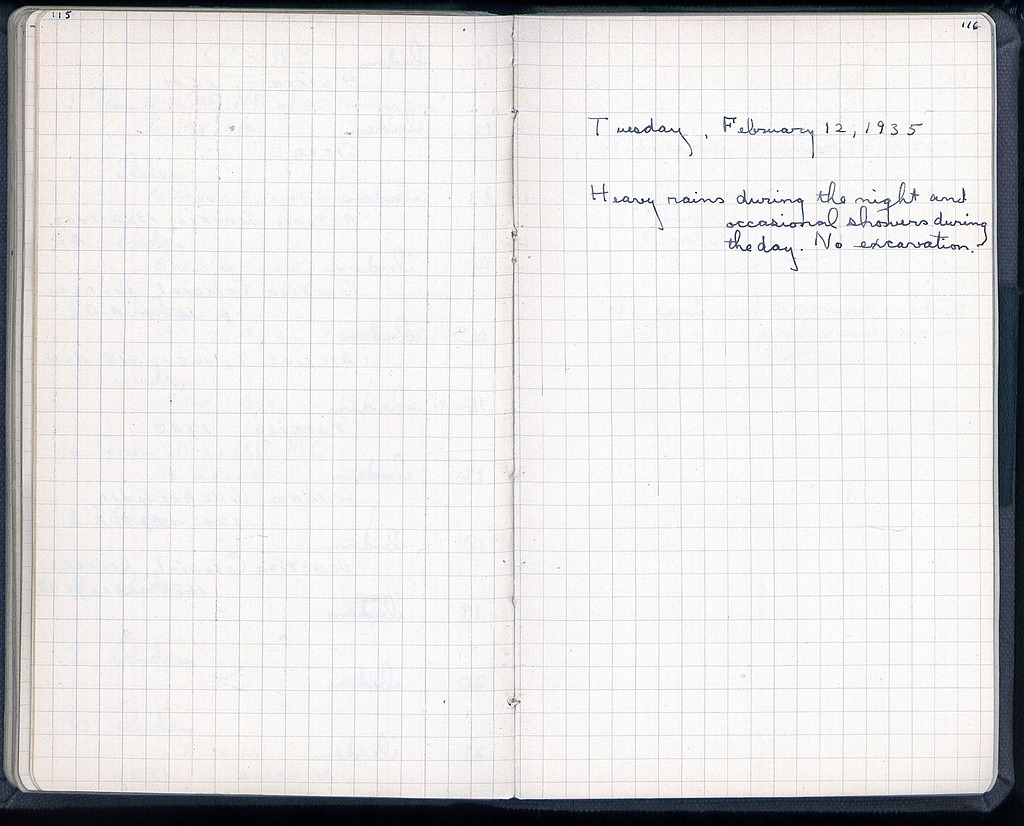 115
116
Tuesday, February 12, 1935
Heavy rains during the night and
occasional showers during
the day. No excavation.